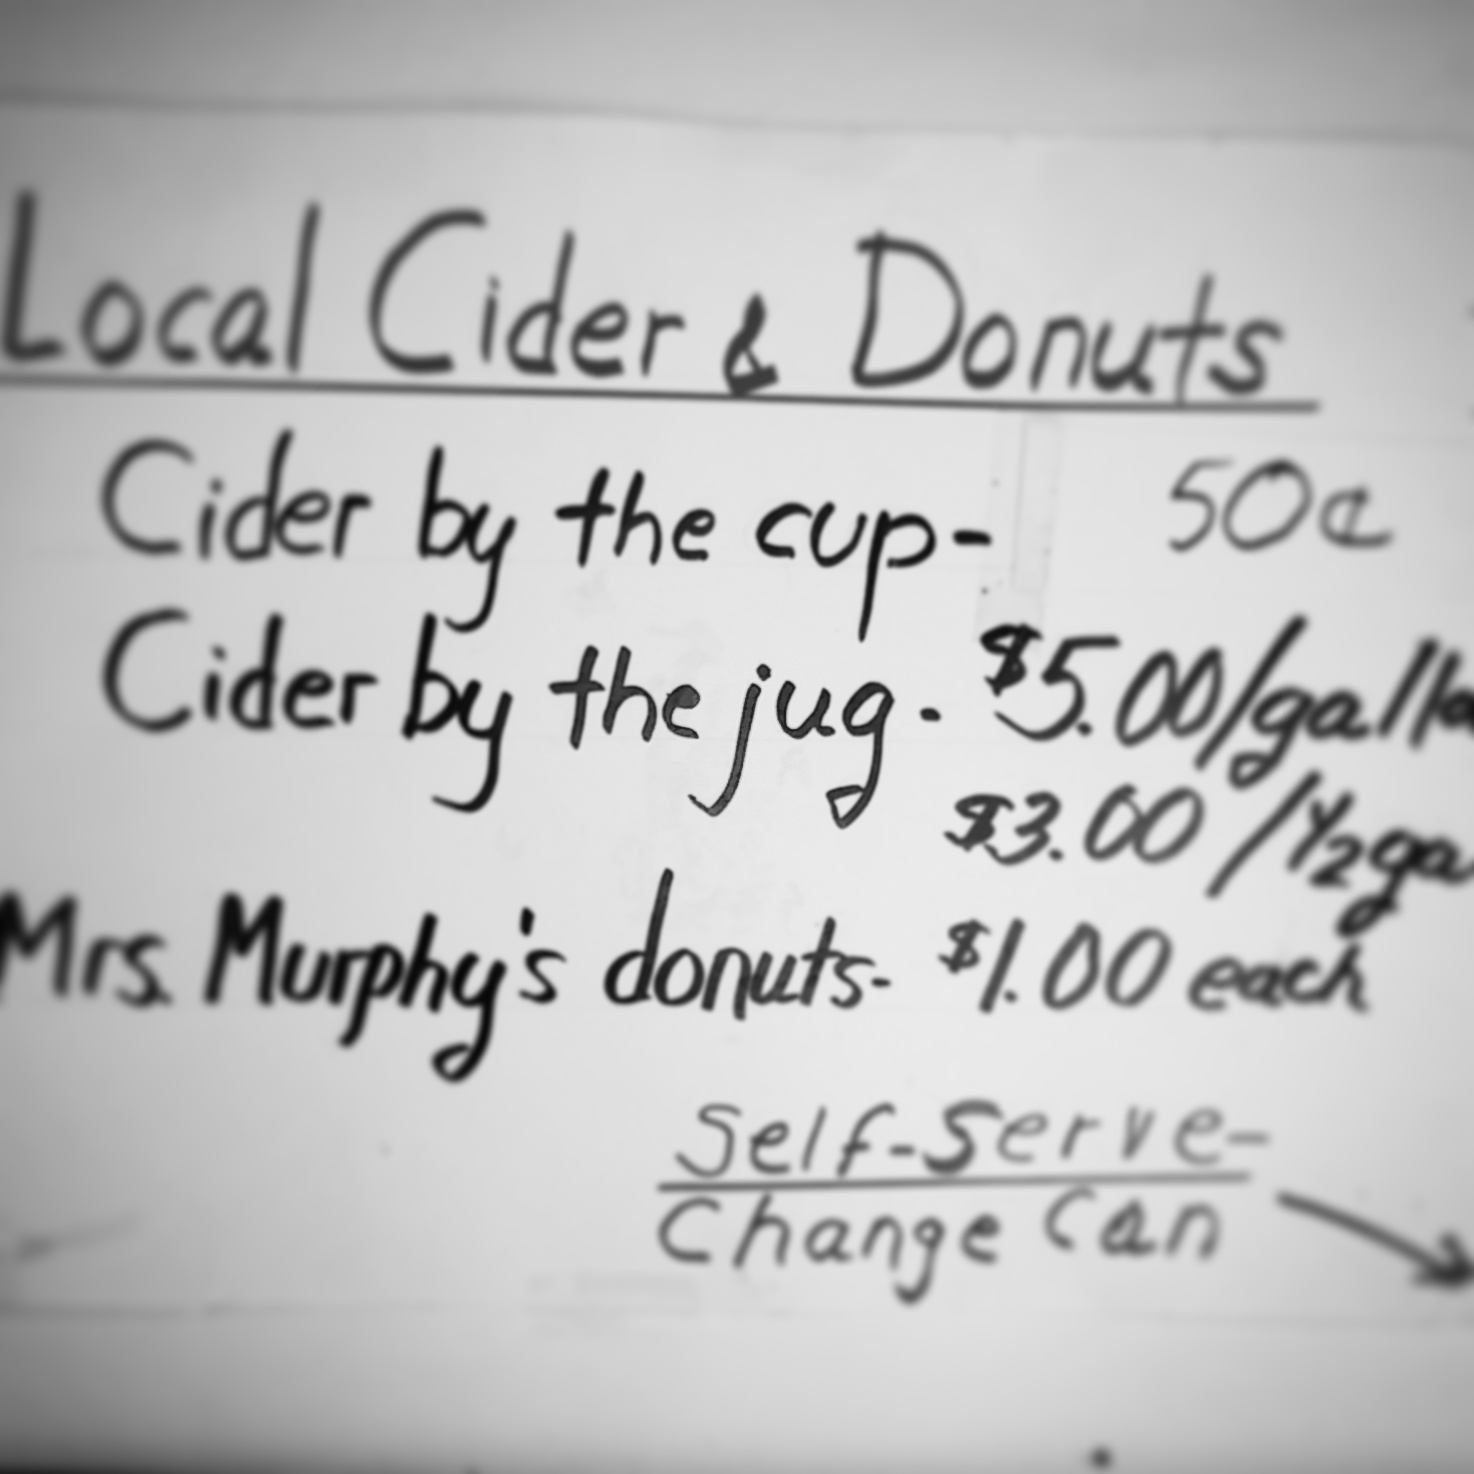 Local Cider & Donuts
Cider by the cup- 50¢
Cider by the jug - $5.00/gallo
$3.00/½ga
Mrs. Murphy's donuts- $1.00 each
Self-Serve-
Change Can